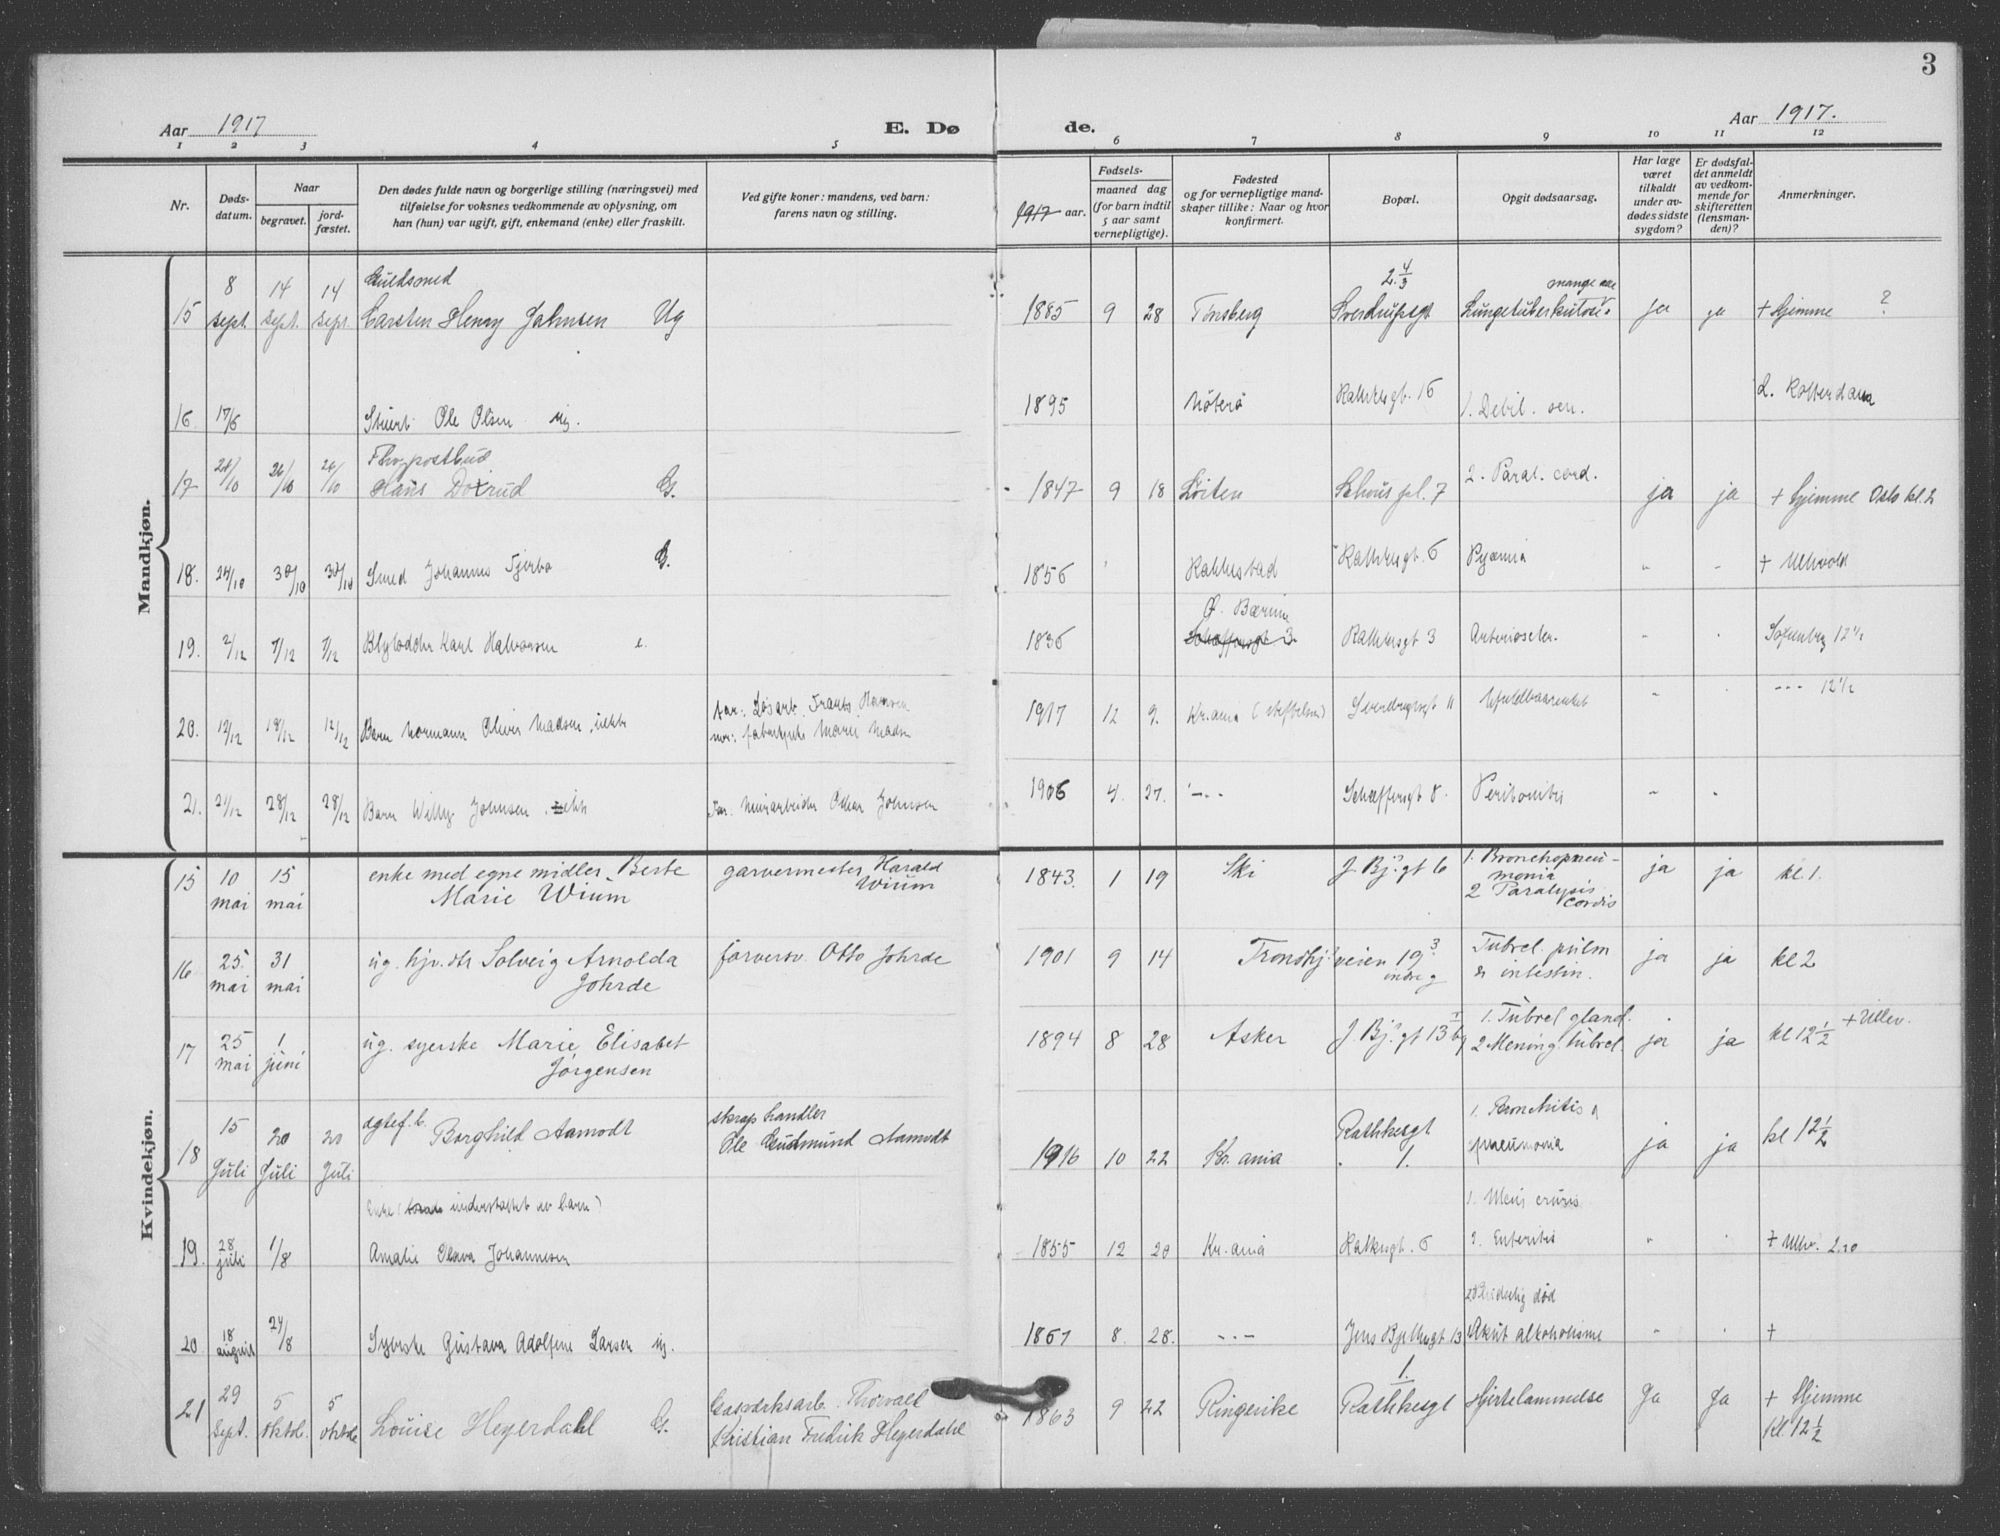 3
Aar 1917
E. Dø
de.
Aar 1917.
1 2 3 4 5 6 7 8 9 10 11 12
Nr.
Døds-
datum.
Naar
begravet.
jord-
fæstet.
Den dødes fulde navn og borgerlige stilling (næringsvei) med
tilføielse for voksnes vedkommende av oplysning, om
han (hun) var ugift, gift, enkemand (enke) eller fraskilt.
Ved gifte koner: mandens, ved barn:
farens navn og stilling.
1917 aar.
Fødsels-
maaned dag
(for barn indtil
5 aar samt
vernepligtige).
Fødested
og for vernepligtige mand-
skaper tillike: Naar og hvor
konfirmert.
Bopæl.
Opgit dødsaarsag.
Har læge
været
tilkaldt
under av-
dødes sidste
sygdom?
Er dødsfal-
det anmeldt
av vedkom-
mende for
skifteretten
(lensman-
den)?
Anmerkninger.
Mandkjøn.
Guldsmed
15 8 sept. 14 sept. 14 sept. Carsten Henry Jahnsen Ug 1885 9 28 Tønsberg Sverdrupsgt 2 4/3 Lungetuberkulose mange aar ja ja + Hjemme ?
16 17/6 Stuert Ole Olsen ug. 1895 Nøterø Rathkesgt. 16 1. Debil. sen. d. Rotterdam
Fhv. postbud
17 24/10 26/10 26/10 Hans Dotrud G. 1847 9 18 Løiten Schous pl. 7 2. Paral. cord. ja ja + Hjemme Oslo kl. 2
18. 24/10 30/10 30/10 Smed Johannes G. 1856 Rakkestad Rathkesgt. 6 Pyæmia " " + Ullevold
19. 2/12 7/12 7/12 Karl Halvorsen e. 1836 Ø. Bærum Schæffersgt 3. Rathkesgt 3 Arterioscler. " " Sofienberg 12 1/2
20. 12/12 19/12 12/12 Barn Normann Oliver Madsen, uekte Far: Løsarb. Frants Hansen
mor: fabrikpike Marie Madsen 1917 12 9. Kr.ania (stiftelsen) Sverdrupsgt 11 Ufuldbaarenhet " " --- 12 1/2
21. 21/12 28/12 28/12 Barn Willy Johnsen, ekte Far. Murarbeider Oskar Johnsen 1906 4. 27. --- Schæffersgt 8. Peritonitis " "
Kvindekjøn.
15 10 mai 15 mai enke med egne midler Berte
Marie Wium garvermester Harald
Wium 1843. 1 19 Ski J. Bj. gt 6 1. Bronchopneu-
monia
2 Paralysis
cordis ja ja kl 1.
16 25. mai 31 mai ug. hjv. dtr Solveig Arnolda
Johrde farversv. Otto Johrde 1901 9 14 Trondhj. veien 19 3
indre g Tubrcl. pulm
& intestin. ja ja kl 2
17 25 mai 1 juni ug. syerske Marie Elisabet
Jørgensen 1894 8 28 Asker J. Bj. gt 13 1. Tubrcl gland.
2 Mening. tubrcl. ja ja kl 12 1/2 + Ullev.
18 15 Juli 20 Juli 20 Juli dgtef. b. Borghild Aamodt skraphandler
Ole Gudmund Aamodt 1916 10 22 Kr.ania Rathkesgt
1. 1. Bronchitis
pneumonia ja ja kl 12 1/2
19. 28 juli 1/8 Enke ( understøttet av barn)
Amalie Olava Johannesen 1855 12 20 Kr.ania Ratkesgt. 6 1. Ulcus cruris
2. Enteritis " " + Ullev. 2.10
20. 18 august 24/8 Syerske Gustava Adolfine Larsen ug. 1867 8. 28. --- Jens Bjelkesgt 13 død
Akut alkoholisme " " +
21 29 Sept. 5 oktbr. 5 oktbr Louise Heyerdahl G. Gasværksarb. Thorvalt
Kristian Fredrik Heyerdahl 1863 9 22 Ringerike Rathkesgt 1. Hjertelammelse Ja Ja + Hjemme
Kl. 12 1/2